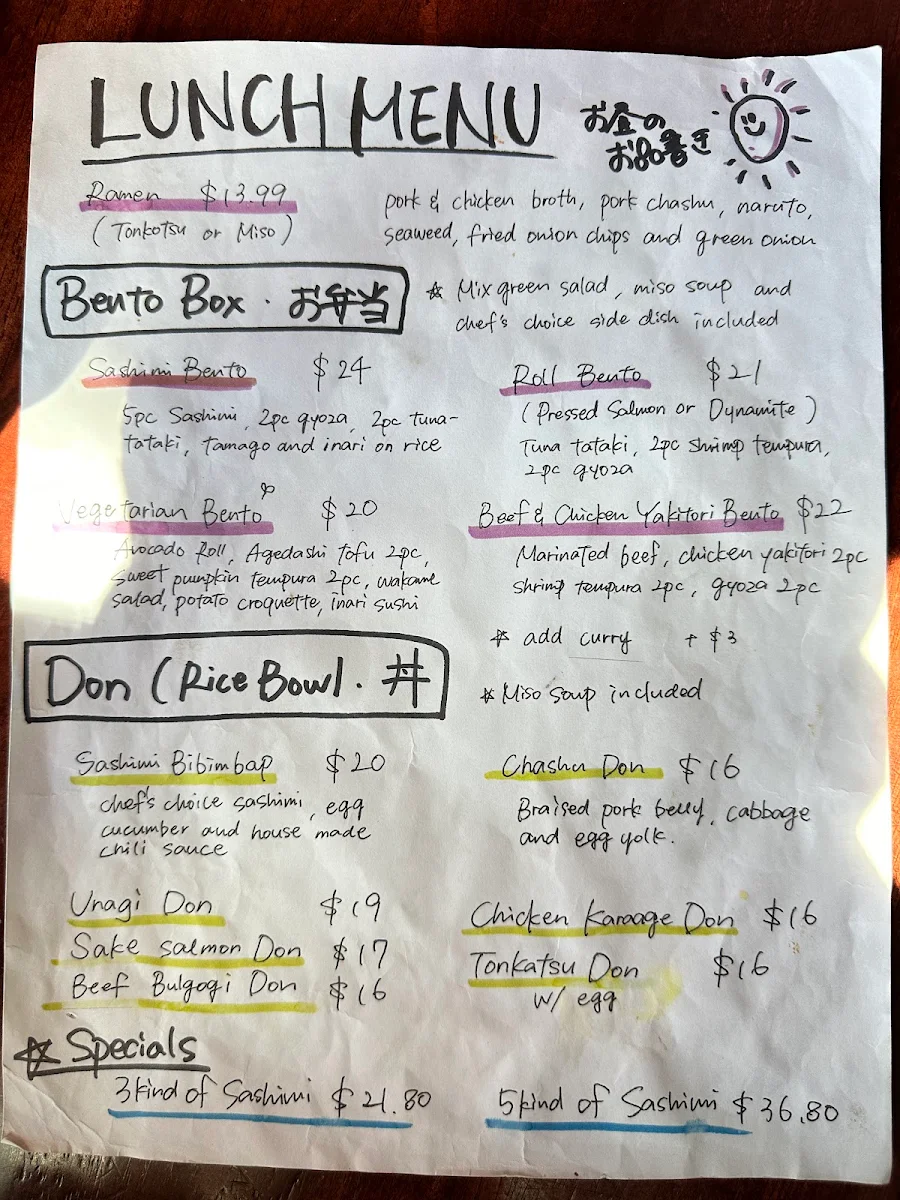 LUNCH MENU
お昼の
お品書き
Ramen $13.99
(Tonkotsu or Miso)
pork & chicken broth, pork chashu, naruto,
seaweed, fried onion chips and green onion
Bento Box・お弁当
☆ Mix green salad, miso soup and
chef's choice side dish included
Sashimi Bento $24
5pc Sashimi, 2pc gyoza, 2pc tuna-
tataki, tamago and inari on rice
Roll Bento $21
(Pressed Salmon or Dynamite)
Tuna tataki, 2pc shrimp tempura,
2pc gyoza
Vegetarian Bento $20
Avocado Roll, Agedashi tofu 2pc,
sweet pumpkin tempura 2pc, wakame
salad, potato croquette, inari sushi
Beef & Chicken Yakitori Bento $22
Marinated beef, chicken yakitori 2pc
shrimp tempura 2pc, gyoza 2pc
☆ add curry + $3
Don (Rice Bowl・丼
☆ Miso soup included
Sashimi Bibimbap $20
chef's choice sashimi, egg
cucumber and house made
chili sauce
Chashu Don $16
Braised pork belly, cabbage
and egg yolk.
Unagi Don $19
Sake salmon Don $17
Beef Bulgogi Don $16
Chicken Karaage Don $16
Tonkatsu Don $16
w/ egg
☆ Specials
3kind of Sashimi $21.80
5kind of Sashimi $36.80